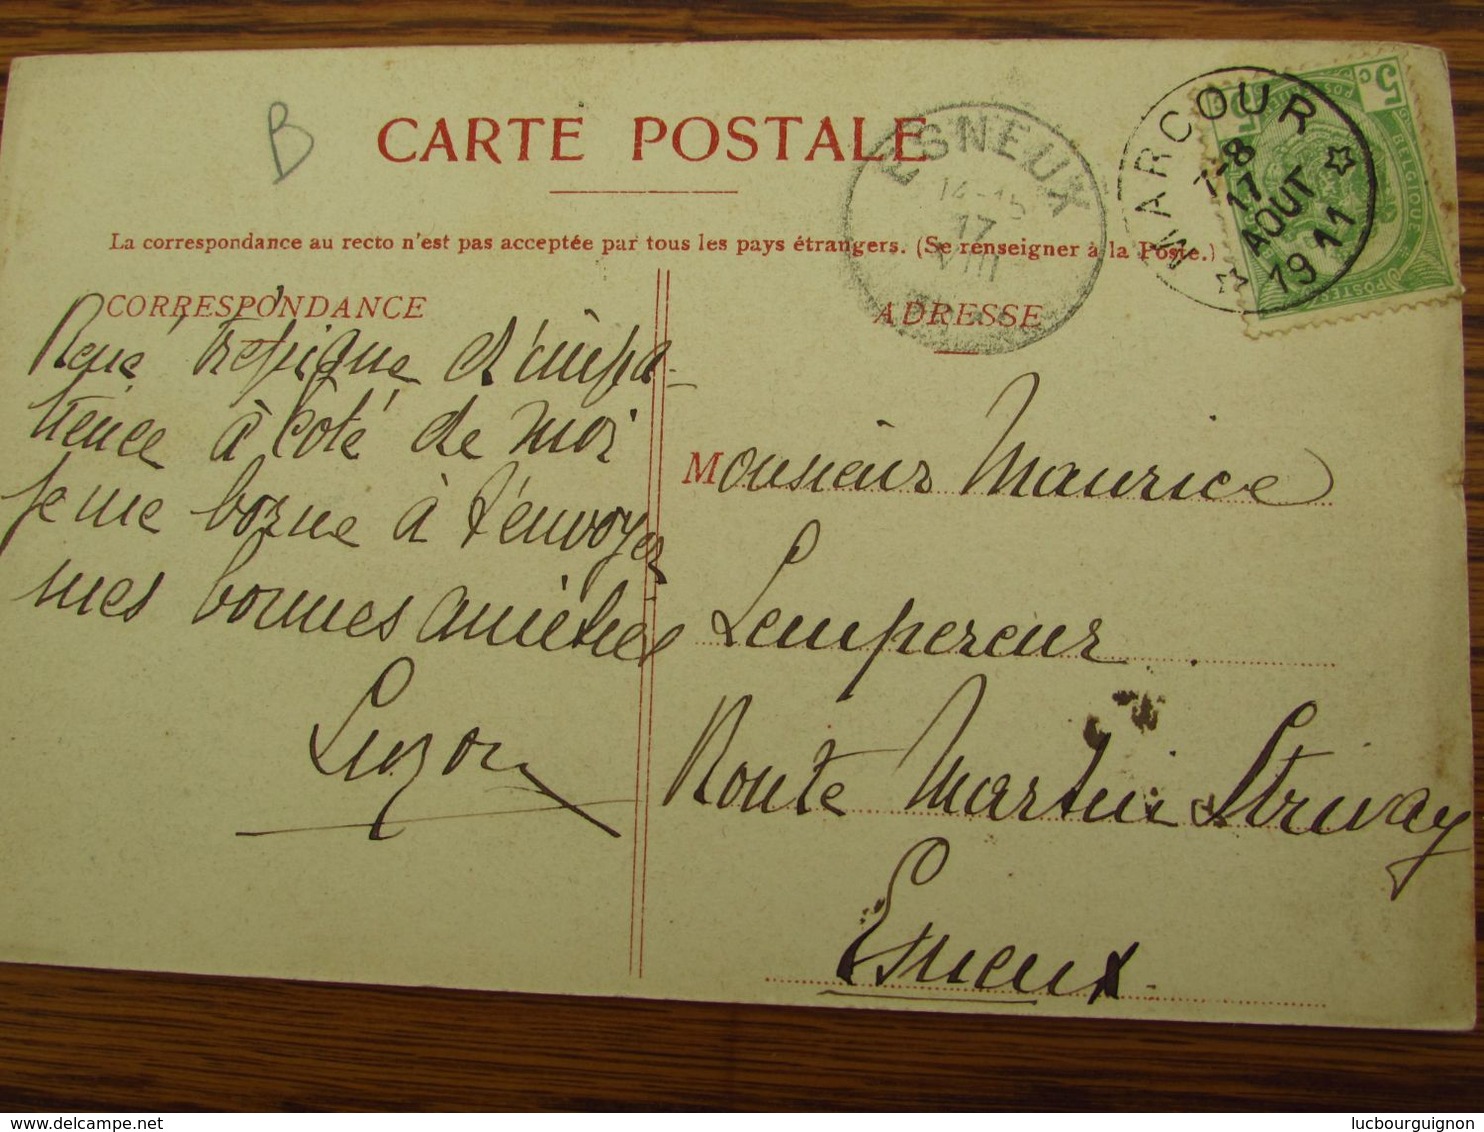 B
CARTE POSTALE
La correspondance au recto n'est pas acceptée par tous les pays étrangers. (Se renseigner à la Poste.)
CORRESPONDANCE
René trépigne d'impa-
tience à côté de moi
je me borne à t'envoyer
mes bonnes amitiés
ADRESSE
Monsieur Maurice
Lempereur
Route Martin Strivay
Esneux
ESNEUX
14-15
17
VIII
MARCOUR
7-8
17
AOUT
1911
5c
BELGIQUE
POSTES
delcampe.net
lucbourguignon